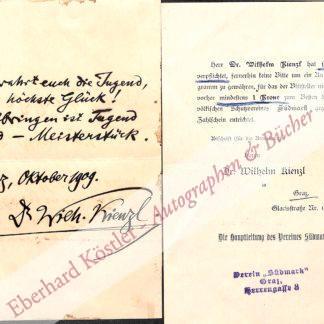 wahrt euch die Jugend,
höchste Glück!
bringen ist Jugend
d – Meisterstück.
Oktober 1909.
Dr Wilh. Kienzl
Herr Dr. Wilhelm Kienzl hat
verpflichtet, fernerhin keine Bitte um ein Au
gramm zu gewähren, für das der Bittsteller nic
vorher mindestens 1 Krone zum Besten
völkischen Schutzvereines Südmark geg
Zahlschein entrichtet.
Abschrift für die
Herrn
Dr. Wilhelm Kienzl
in
Graz
Glacisstraße Nr.
Die Hauptleitung des Vereines Südmar
Verein „Südmark"
Graz,
Herrengasse 3
Eberhard Köstler - Autographen & Bücher